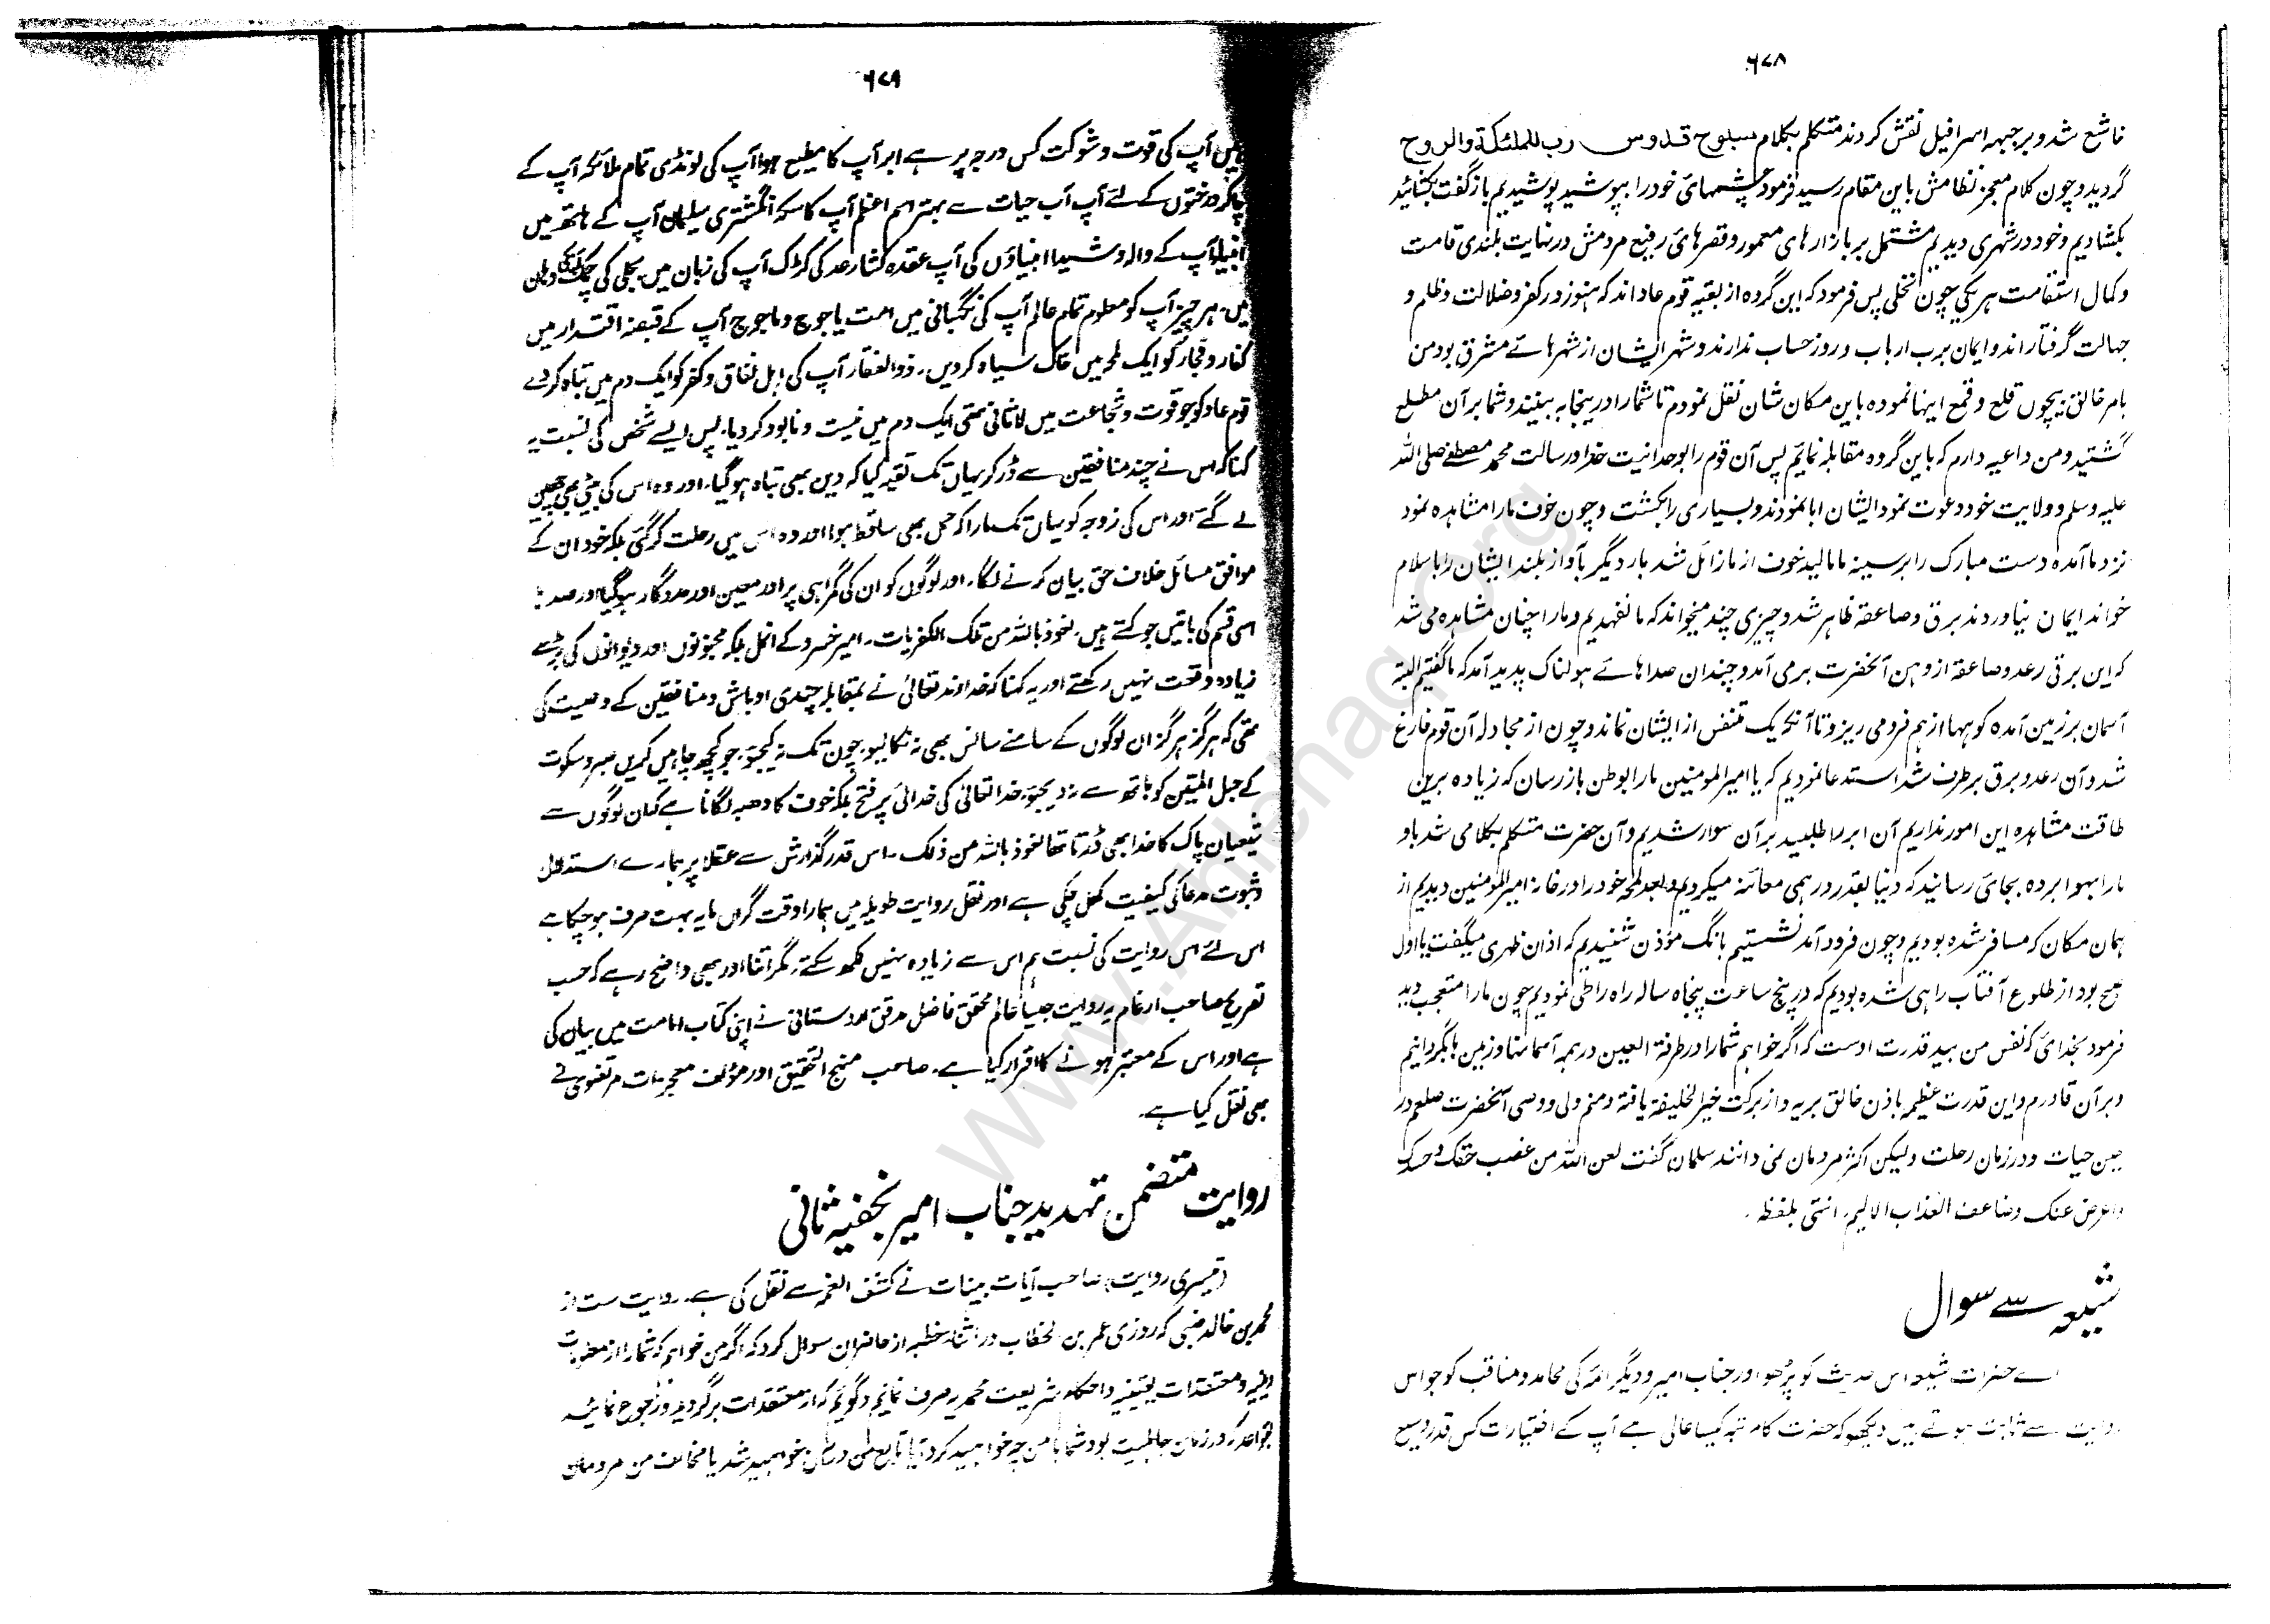 ۶۷۸
خاشع شد و بر جبہہ اسرافیل نقش کردند متکلم بکلام سبوح قدوس رب الملئکة والروح
گردید و چون کلام معجز نظامش باین مقام رسید فرمود چشمہائی خود را بپوشید پوشیدیم باز گفت بکشائید
بکشادیم و خود در شہری دیدیم مشتمل بر بازارهای معمور و قصرهائ رفیع مردمش در نہایت بلندی قامت
و کمال استقامت ہر یکی چون نخلی پس فرمود کہ این گروه از بقیہ قوم عاد اند کہ ہنوز در کفر و ضلالت و ظلم و
جہالت گرفتار اند و ایمان برب ارباب و روز حساب ندارند و شہر ایشان از شہرہائے مشرق بود من
بامر خالق بیچوں قلع و قمع اینہا نموده باین مکان شان نقل نمودم تا شمارا در ینجا بہ ببینند و شما بر آن مطلع
گشتید و من داعیہ دارم کہ باین گروه مقابلہ نمائیم پس آن قوم را بوحدانیت خدا و رسالت محمد مصطفے صلی اللہ
علیہ وسلم و ولایت خود دعوت نمود ایشان ابا نمودند و بسیاری را بکشت و چون خوف مارا مشاہده نمود
نزد ما آمده دست مبارک را بر سینہ ما مالید خوف از ما زائل شد بار دیگر بآواز بلند ایشان را باسلام
خواند ایمان نیاوردند برق و صاعقہ ظاہر شد و چیزی چند میخواند کہ ما نفہمیدیم و مارا چنان مشاہده می شد
کہ این برق و رعد و صاعقہ از دہن آنحضرت برمی آمد و چندان صداہائے ہولناک پدید آمد کہ ما گفتیم البتہ
آسمان بر زمین آمده کوہہا از ہم فرو می ریزد تا آنکہ یک متنفس از ایشان نماند و چون از مجادلہ آن قوم فارغ
شد و آن رعد و برق برطرف شد استدعا نمودیم کہ یا امیر المومنین مارا بوطن باز رسان کہ زیاده برین
طاقت مشاہده این امور نداریم آن ابر را طلبید بر آن سوار شدیم و آن حضرت متکلم بکلامی شد باد
مارا بہوا برده بجائی رسانید کہ دنیا بقدر در ہمی معائنہ میکردیم و بعد لمحہ خود را در خانہ امیر المومنین دیدیم از
ہمان مکان کہ مسافر شده بودیم و چون فرود آمد نشستیم بانگ مؤذن شنیدیم کہ اذان ظہری میگفت یا اول
صبح بود از طلوع آفتاب راہی شده بودیم کہ در پنج ساعت پنجاه سالہ راه را طی نمودیم چون مارا متعجب دید
فرمود بخدائی کہ نفس من بید قدرت اوست کہ اگر خواہم شمارا در طرفۃ العین در ہمہ آسمانہا و زمین ہا بگردانیم
و بر آن قادرم و این قدرت عظیمہ باذن خالق بریہ و از برکت خیر الخلیفۃ یافتہ و منم ولی و وصی آنحضرت صلعم در
حین حیات و در زمان رحلت و لیکن اکثر مردمان نمی دانند سلمان گفت لعن اللہ من غصب حقک و حدک
و اعرض عنک و ضاعف العذاب الالیم۔ انتہی بلفظہ ۔
شیعہ سے سوال
اے حضرات شیعہ اس حدیث کو پڑھو اور جناب امیر و دیگر ائمہ کی محامد و مناقب کو جو اس
روایت سے ثابت ہوتے ہیں دیکھو کہ حضرت کا مرتبہ کیسا عالی ہے آپ کے اختیارات کس قدر وسیع
۶۷۹
ہیں آپ کی قوت و شوکت کس درجہ پر ہے ابر آپ کا مطیع ہوا آپ کی لونڈی تمام ملائکہ آپ کے
چاکر درختوں کے لئے آپ آب حیات سے بہتر اسم اعظم آپ کا سکہ انگشتری سلیمان آپ کے ہاتھ میں
انبیا آپ کے والہ و شیدا انبیاؤں کی آپ عقدہ کشا رعد کی کڑک آپ کی زبان میں بجلی کی چمک آپ کی دہان
میں۔ ہر چیز آپ کو معلوم تمام عالم آپ کی نگہبانی میں امت یاجوج و ماجوج آپ کے قبضہ اقتدار میں
کفار و فجار کو ایک لمحہ میں خاک سیاہ کر دیں۔ ذوالفقار آپ کی اہل نفاق و کفر کو ایک دم میں تباہ کر دے
قوم عاد کو جو قوت و شجاعت میں لاثانی تھی ایک دم میں نیست و نابود کر دیا۔ پس ایسے شخص کی نسبت یہ
کہنا کہ اس نے چند منافقین سے ڈر کر یہاں تک تقیہ کیا کہ دین بھی تباہ ہو گیا۔ اور وہ اس کی بیٹی بھی چھین
لے گئے اور اس کی زوجہ کو یہاں تک مارا کہ حمل بھی ساقط ہوا اور وہ اس میں رحلت کر گئی بلکہ خود ان کے
موافق مسائل خلاف حق بیان کرنے لگا۔ اور لوگوں کو ان کی گمراہی پر اور معین اور مددگار ہو گیا اور صدہا
اسی قسم کی باتیں جو کہتے ہیں۔ نعوذ باللہ من تلک الکفریات۔ امیر خسرو کے انمل بلکہ مجنونوں اور دیوانوں کی بڑ سے
زیادہ وقعت نہیں رکھتے اور یہ کہنا کہ خداوند تعالیٰ نے بمقابلہ چندی اوباش و منافقین کے وصیت کی
تھی کہ ہرگز ہرگز ان لوگوں کے سامنے سانس بھی نہ نکالیو۔ چون تک نہ کیجیؤ۔ جو کچھ چاہیں کریں صبر و سکوت
کے حبل المتین کو ہاتھ سے نہ دیجیؤ۔ خدا تعالیٰ کی خدائی پر فتح بلکہ خوف کا دھبہ لگانا ہے کہ ان لوگوں سے
شیعیان پاک کا خدا بھی ڈرتا تھا نعوذ باللہ من ذلک۔ اس قدر گذارش سے عقلا پر ہمارے استدلال
و ثبوت مدعا کی کیفیت کھل چکی ہے اور نقل روایت طویلہ میں ہمارا وقت گراں مایہ بہت صرف ہو چکا ہے
اس لئے اس روایت کی نسبت ہم اس سے زیادہ نہیں لکھ سکتے۔ مگر اتنا اور بھی واضح رہے کہ حسب
تصریح صاحب ارغام یہ روایت جیسا عالم محقق فاضل مدقق اردستانی نے اپنی کتاب امامت میں بیان کی
ہے اور اس کے معتبر ہونے کا اقرار کیا ہے۔ صاحب منہج التحقیق اور مؤلف معجزات مرتضوی نے
بھی نقل کیا ہے۔
روایت متضمن تہدید جناب امیر بخلیفہ ثانی
(تیسری روایت) صاحب آیات بینات نے کشف الغمہ سے نقل کی ہے۔ روایت ست از
محمد بن خالد ضبی کہ روزی عمر بن الخطاب در اثناء خطبہ از حاضران سوال کرد کہ اگر من خواہم کہ شمارا از معتبرات
دینیہ و معتقدات یقینیہ و احکام شریعت محمدیہ صرف نمائیم و گویم کہ از معتقدات برگردید و رجوع نمائید
بقواعد کہ در زمان جاہلیت بود شما با من چہ خواہید کرد آیا تابع من خواہید شد یا مخالف من مردمان
www.Ahlehaq.org